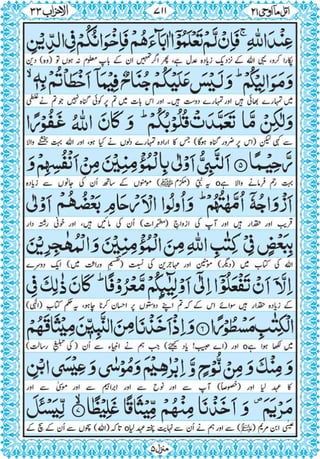 اتل مآ اوحی ۲۱
۷۱۱
الاحزاب ۳۳
عِنْدَ اللّٰهِ ۚ فَاِنْ لَّمْ تَعْلَمُوْۤا اٰبَآءَهُمْ فَاِخْوَانُكُمْ فِی الدِّیْنِ
پکارا کرو، یہی اللہ کے نزدیک زیادہ عدل ہے، پھر اگر تمہیں ان کے باپ معلوم نہ ہوں تو (وہ) دین
وَ مَوَالِیْكُمْ ؕ وَ لَیْسَ عَلَیْكُمْ جُنَاحٌ فِیْمَاۤ اَخْطَاْتُمْ بِهٖ ۙ
میں تمہارے بھائی ہیں اور تمہارے دوست ہیں۔ اور اس بات میں تم پر کوئی گناہ نہیں جو تم نے غلطی
وَ لٰكِنْ مَّا تَعَمَّدَتْ قُلُوْبُكُمْ ؕ وَ كَانَ اللّٰهُ غَفُوْرًا
سے کہی لیکن (اس پر ضرور گناہ ہوگا) جس کا ارادہ تمہارے دلوں نے کیا ہو، اور اللہ بہت بخشنے والا
رَّحِیْمًا ۵ اَلنَّبِیُّ اَوْلٰی بِالْمُؤْمِنِیْنَ مِنْ اَنْفُسِهِمْ وَ
بہت رحم فرمانے والا ہے۝ یہ نبیِّ (مکرّم) مومنوں کے ساتھ اُن کی جانوں سے زیادہ
اَزْوَاجُهٗۤ اُمَّهٰتُهُمْ ؕ وَ اُولُوا الْاَرْحَامِ بَعْضُهُمْ اَوْلٰی
قریب اور حقدار ہیں اور آپ کی ازواجِ (مطہرات) اُن کی مائیں ہیں، اور خونی رشتہ دار
بِبَعْضٍ فِیْ كِتٰبِ اللّٰهِ مِنَ الْمُؤْمِنِیْنَ وَ الْمُهٰجِرِیْنَ
اللہ کی کتاب میں (دیگر) مومنین اور مہاجرین کی نسبت (تقسیمِ وراثت میں) ایک دوسرے
اِلَّاۤ اَنْ تَفْعَلُوْۤا اِلٰۤی اَوْلِیٰٓىِٕكُمْ مَّعْرُوْفًا ؕ كَانَ ذٰلِكَ فِی
کے زیادہ حقدار ہیں سوائے اس کے کہ تم اپنے دوستوں پر احسان کرنا چاہو، یہ حکم کتابِ (الٰہی)
الْكِتٰبِ مَسْطُوْرًا ۶ وَ اِذْ اَخَذْنَا مِنَ النَّبِیّٖنَ مِیْثَاقَهُمْ
میں لکھا ہوا ہے۝ اور (اے حبیب! یاد کیجئے) جب ہم نے انبیاء سے اُن (کی تبلیغِ رسالت)
وَ مِنْكَ وَ مِنْ نُّوْحٍ وَّ اِبْرٰهِیْمَ وَ مُوْسٰی وَ عِیْسَی ابْنِ
کا عہد لیا اور (خصوصاً) آپ سے اور نوح سے اور ابراہیم سے اور موسٰی سے اور
مَرْیَمَ ۪ وَ اَخَذْنَا مِنْهُمْ مِّیْثَاقًا غَلِیْظًا ۙ۷ لِّیَسْـَٔلَ
عیسٰی ابن مریم سے اور ہم نے اُن سے نہایت پختہ عہد لیا۝ تاکہ (اللہ) سچوں سے اُن کے سچ کے
منزل ۵